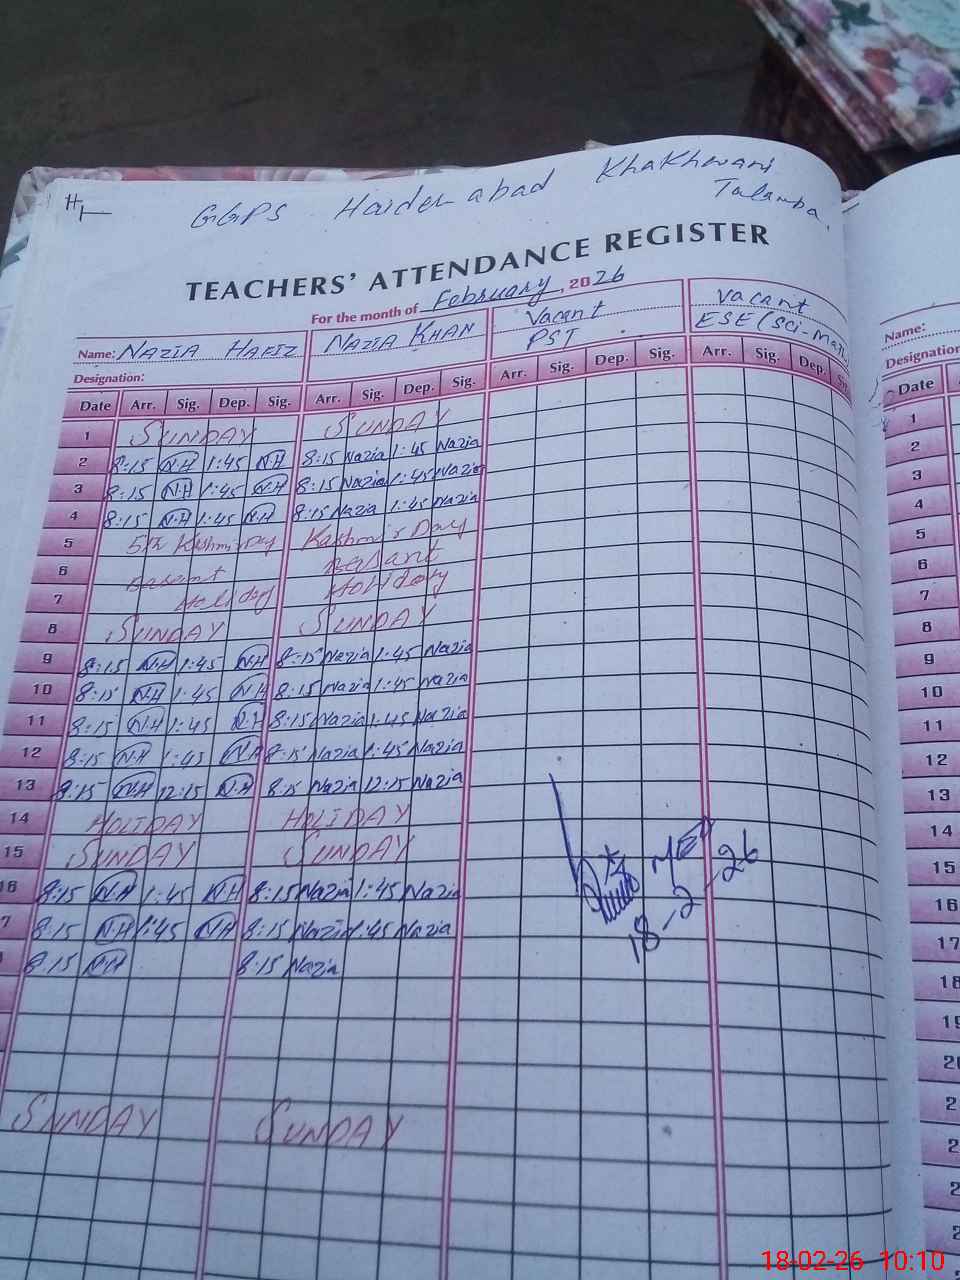 GGPS Haider abad Khakhwani
Talamba
TEACHERS' ATTENDANCE REGISTER
For the month of February, 2026
Name: NAZIA HAFIZ NAZIA KHAN Vacant Vacant
Designation: PST ESE (Sci-Math
Date Arr. Sig. Dep. Sig. Arr. Sig. Dep. Sig. Arr. Sig. Dep. Sig. Arr. Sig. Dep.
1 SUNDAY SUNDAY
2 8:15 N.H 1:45 N.H 8:15 Nazia 1:45 Nazia
3 8:15 N.H 1:45 N.H 8:15 Nazia 1:45 Nazia
4 8:15 N.H 1:45 N.H 8:15 Nazia 1:45 Nazia
5 5th Kashmir Day Kashmir Day
6 basant basant
7 Holiday Holiday
8 SUNDAY SUNDAY
9 8:15 N.H 1:45 N.H 8:15 Nazia 1:45 Nazia
10 8:15 N.H 1:45 N.H 8:15 Nazia 1:45 Nazia
11 8:15 N.H 1:45 N.H 8:15 Nazia 1:45 Nazia
12 8:15 N.H 1:45 N.H 8:15 Nazia 1:45 Nazia
13 8:15 N.H 12:15 N.H 8:15 Nazia 12:15 Nazia
14 HOLIDAY HOLIDAY
15 SUNDAY SUNDAY
16 8:15 N.H 1:45 N.H 8:15 Nazia 1:45 Nazia
7 8:15 N.H 1:45 N.H 8:15 Nazia 1:45 Nazia
8:15 N.H 8:15 Nazia
SUNDAY SUNDAY
MEA
18-2-26
Name:
Designation
Date
1
2
3
4
5
6
7
8
9
10
11
12
13
14
15
16
17
18
19
2
2
2
2
18-02-26 10:10